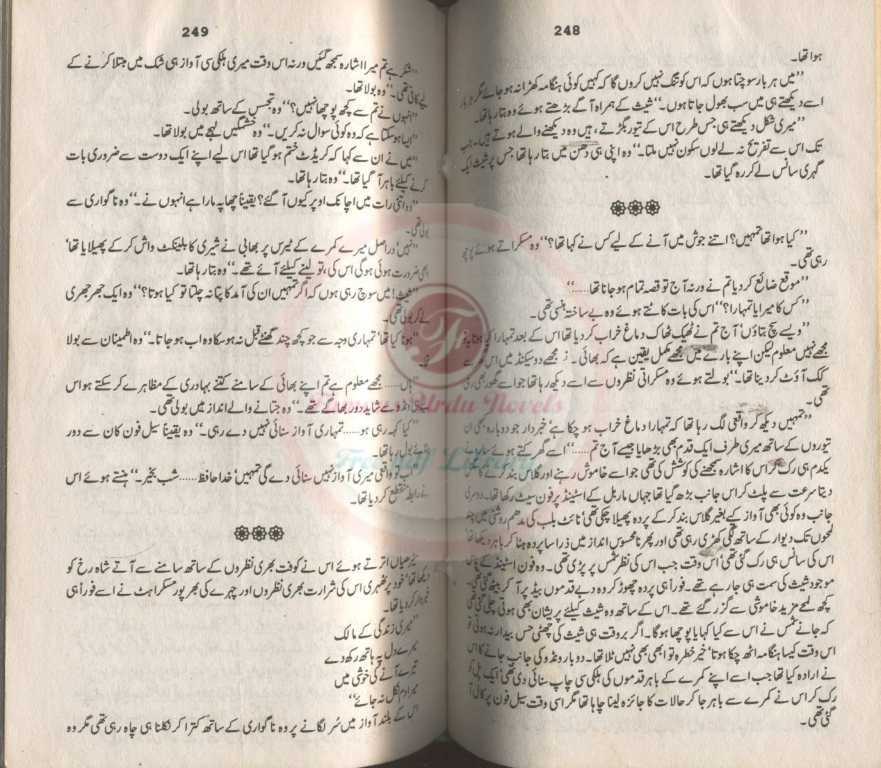 248
ہوا تھا۔
”میں ہر بار سوچتا ہوں کہ اس کو تنگ نہیں کروں گا کہ کہیں کوئی ہنگامہ کھڑا نہ ہو جائے مگر ہر بار
اسے دیکھتے ہی میں سب بھول جاتا ہوں۔“ شیث کے ہمراہ آگے بڑھتے ہوئے وہ بتا رہا تھا۔
”میری شکل دیکھتے ہی جس طرح اس کے تیور بگڑتے ہیں وہ دیکھنے والے ہوتے ہیں۔ جب
تک اس سے تفریح نہ لے لوں سکون نہیں ملتا۔“ وہ اپنی ہی دھن میں بتا رہا تھا جس پر شیث ایک
گہری سانس لے کر رہ گیا تھا۔
”کیا ہوا تھا تمہیں؟ اتنے جوش میں آنے کے لیے کس نے کہا تھا؟“ وہ مسکراتے ہوئے پوچھ
رہی تھی۔
”موقع ضائع کر دیا تم نے ورنہ آج تو قصہ تمام ہو جانا تھا......“
”کس کا میرا یا تمہارا؟“ اس کی بات کاٹتے ہوئے وہ بے ساختہ ہنسی تھی۔
”ویسے سچ بتاؤں‘ آج تم نے ٹھیک ٹھاک دماغ خراب کر دیا تھا اس کے بعد تمہارا کیا ہوتا یہ تو
مجھے نہیں معلوم لیکن اپنے بارے میں مجھے مکمل یقین ہے کہ بھائی نے مجھے دو سیکنڈ میں اس
کک آؤٹ کر دینا تھا۔“ بولتے ہوئے وہ مسکراتی نظروں سے اسے دیکھ رہا تھا جو اسے گھور رہی
تھی۔
”تمہیں دیکھ کر واقعی لگ رہا تھا کہ تمہارا دماغ خراب ہو چکا ہے‘ خبردار جو دوبارہ بھی ان
تیوروں کے ساتھ میری طرف ایک قدم بھی بڑھایا جیسے آج تم......“ اسے گھر کتے ہوئے
یکدم ہی رک کر اس کا اشارہ سمجھنے کی کوشش کی تھی جو اسے خاموش رہنے اور گلاس بند کرنے کا
دیتا سرعت سے پلٹ کر اس جانب بڑھ گیا تھا جہاں ماربل کے اسٹینڈ پر فون سیٹ رکھا تھا۔ دوسری
جانب وہ کوئی بھی آواز کیے بغیر گلاس بند کر کے پردہ پھیلا چکی تھی‘ نائٹ بلب کی مدھم روشنی میں چند
لمحوں تک دیوار کے ساتھ لگی کھڑی رہی تھی اور پھر نامحسوس انداز میں ذرا سا پردہ ہٹا کر باہر دیکھا تھا
اس کی سانس ہی رک گئی تھی‘ اس وقت جب اس کی نظر شمس پر پڑی تھی۔ وہ فون اسٹینڈ کے پاس
موجود شیث کی سمت ہی جا رہے تھے۔ فوراً ہی پردہ چھوڑ کر وہ دبے قدموں بیڈ پر آ کر بیٹھ گئی تھی۔
کچھ لمحے مزید خاموشی سے گزر گئے تھے۔ اس کے ساتھ وہ شیث کیلئے پریشان بھی ہوتی چلی گئی تھی
کہ جانے شمس نے اس سے کیا کہا یا پوچھا ہوگا۔ اگر بروقت ہی شیث کی چھٹی حس بیدار نہ ہوئی تو
اس وقت کیسا ہنگامہ اٹھ چکا ہوتا‘ خیر خطرہ تو ابھی بھی نہیں ٹلا تھا۔ دوبارہ ونڈو کی جانب جانے کا اس
نے ارادہ کیا تھا جب اسے اپنے کمرے کے باہر قدموں کی ہلکی سی چاپ سنائی دی تھی‘ ایک پل کو
رک کر اس نے کمرے سے باہر جا کر حالات کا جائزہ لینا چاہا تھا مگر اسی وقت سیل فون پر کال آ
گئی تھی۔
249
”شکر ہے تم میرا اشارہ سمجھ گئیں ورنہ اس وقت میری ہلکی سی آواز ہی شک میں مبتلا کرنے کے
لیے کافی تھی۔“ وہ بولا تھا۔
”انہوں نے تم سے کچھ پوچھا نہیں؟“ وہ تجسس کے ساتھ بولی۔
”ایسا ہو سکتا ہے کہ وہ کوئی سوال نہ کریں۔“ وہ خشمگیں لہجے میں بولا تھا۔
”میں نے ان سے کہا کہ کریڈٹ ختم ہو گیا تھا اس لیے اپنے ایک دوست سے ضروری بات
کرنے کیلئے باہر آ گیا تھا۔“ وہ بتا رہا تھا۔
”وہ اتنی رات میں اچانک اوپر کیوں آ گئے؟ یقیناً چھاپہ مارا ہے انہوں نے۔“ وہ ناگواری سے
بولی تھی۔
”نہیں‘ دراصل میرے کمرے کے ٹیرس پر بھابی نے شیری کا بلینکٹ واش کر کے پھیلایا تھا‘
ابھی ضرورت ہوئی ہوگی اس کی‘ تو لینے کیلئے آئے تھے۔“ وہ بتا رہا تھا۔
”شیث! میں سوچ رہی ہوں کہ اگر تمہیں ان کی آمد کا پتا نہ چلتا تو کیا ہوتا؟“ وہ ایک جھرجھری
لے کر بولی تھی۔
”ہونا کیا تھا‘ تمہاری وجہ سے جو کچھ چند گھنٹے قبل نہ ہو سکا وہ اب ہو جاتا۔“ وہ اطمینان سے بولا
تھا۔
”ہاں...... مجھے معلوم ہے تم اپنے بھائی کے سامنے کتنے بہادری کے مظاہرے کر سکتے ہو اس
وہ شاید دور بھاگتے تھے۔“ وہ جتانے والے انداز میں بولی تھی۔
”کیا کہہ رہی ہو...... تمہاری آواز سنائی نہیں دے رہی۔“ وہ یقیناً سیل فون کان سے دور
بول رہا تھا۔
واقعی میری آواز نہیں سنائی دے گی تمہیں‘ خدا حافظ...... شب بخیر۔“ ہنستے ہوئے اس
نے رابطہ منقطع کر دیا تھا۔
سیڑھیاں اترتے ہوئے اس نے کوفت بھری نظروں کے ساتھ سامنے سے آتے شاہ رخ کو
دیکھا تھا‘ خود پر ٹھہری اس کی شرارت بھری نظروں اور چہرے کی بھرپور مسکراہٹ نے اسے فوراً ہی
خبردار کر دیا تھا۔
”میری زندگی کے مالک
میرے دل پہ ہاتھ رکھ دے
تیرے آنے کی خوشی میں
میرا دم نکل نہ جائے“
اس کے بلند آواز میں سُر لگانے پر وہ ناگواری کے ساتھ کترا کر نکلنا ہی چاہ رہی تھی مگر وہ